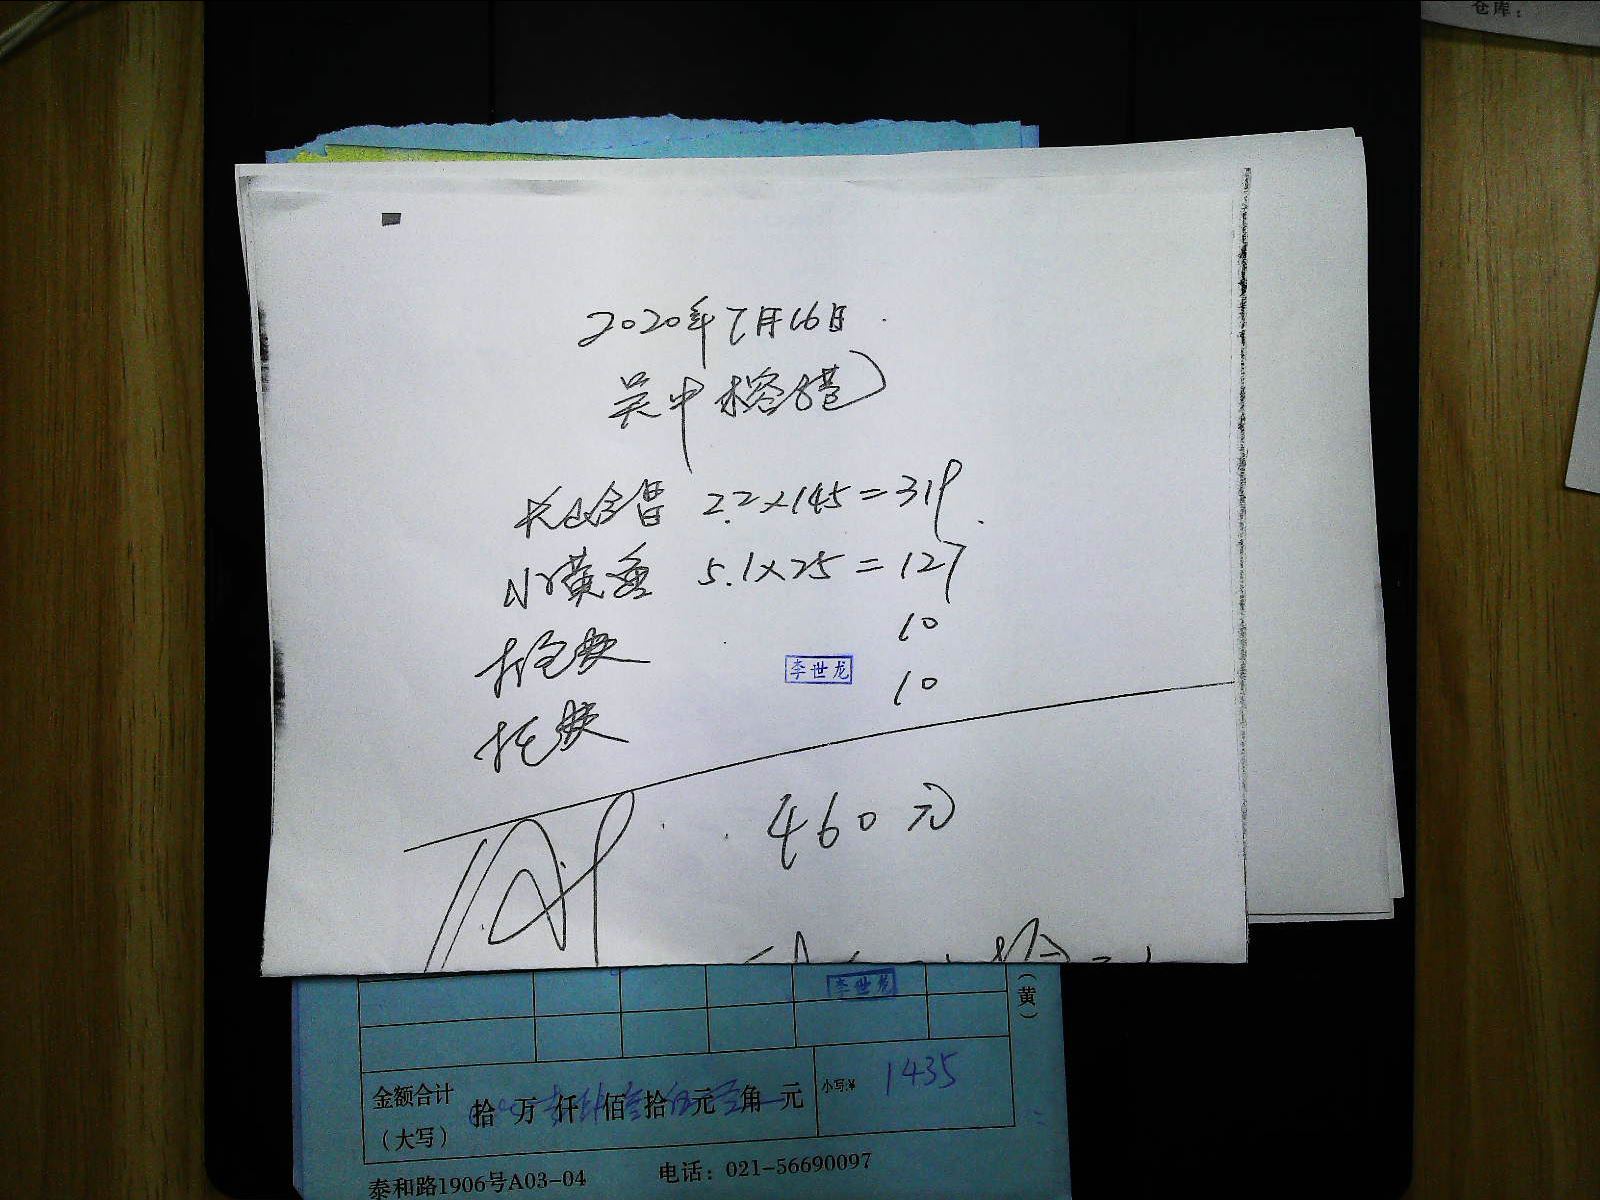 仓库：
2020年7月16日
吴中榕港
2.2×145=319
小黄鱼 5.1×25=127
10
李世龙
10
460元
李世龙
（黄）
金额合计
（大写）
拾 万 仟 佰 拾 元 角 元
小写:¥ 1435
泰和路1906号A03-04 电话：021-56690097